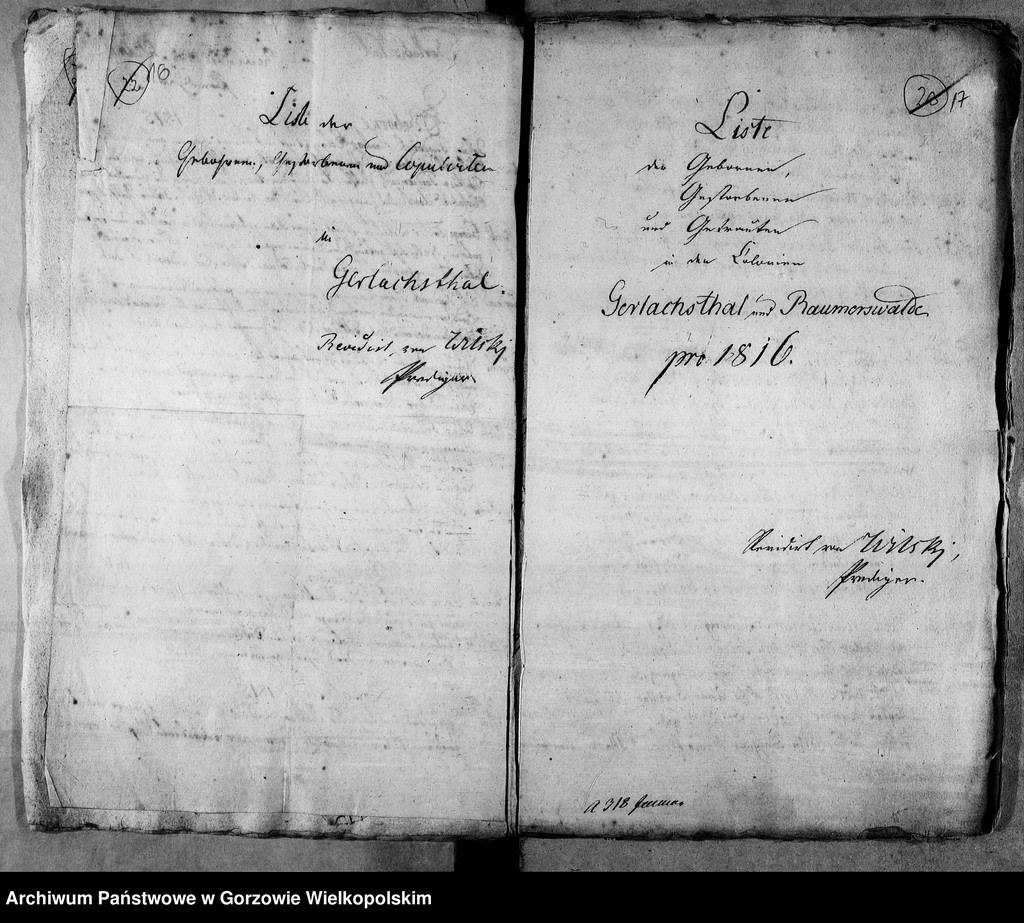 22 16
Liste der
Gebohrnen, Gestorbenen und Copulirten
in
Gerlachsthal.
Revidirt von Wilskj
Prediger
28 17
Liste
der Gebornen,
Gestorbenen
und Getrauten
in den Colonien
Gerlachsthal und Raumerswalde
pro 1816.
Revidirt von Wilskj,
Prediger.
a 318
Archiwum Państwowe w Gorzowie Wielkopolskim